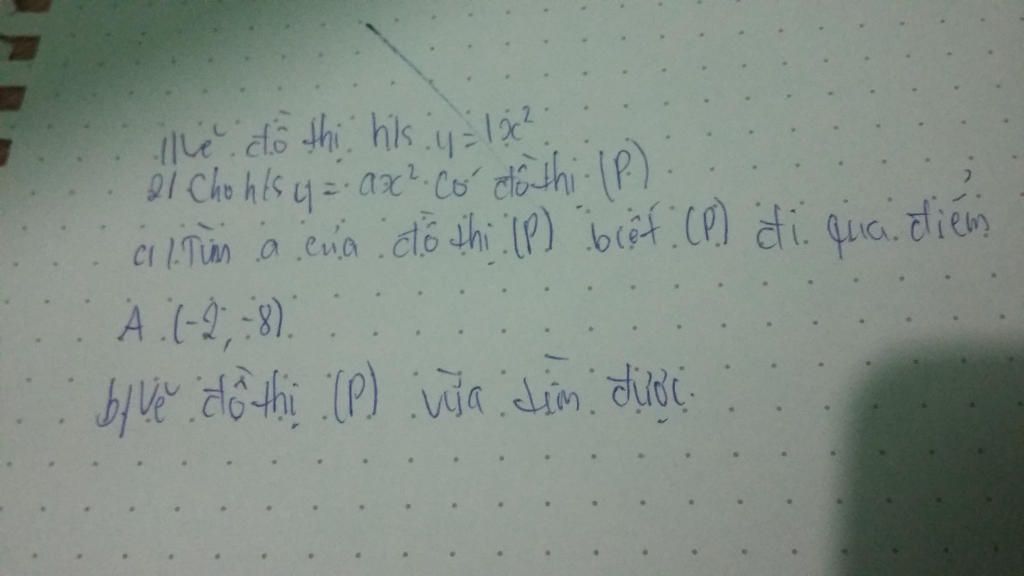 1/ Vẽ đồ thị h/s y = 1x²
2/ Cho h/s y = ax² có đồ thị (P)
a/. Tìm a của đồ thị (P) biết (P) đi qua điểm
A (-2; -8).
b/ Vẽ đồ thị (P) vừa tìm được.